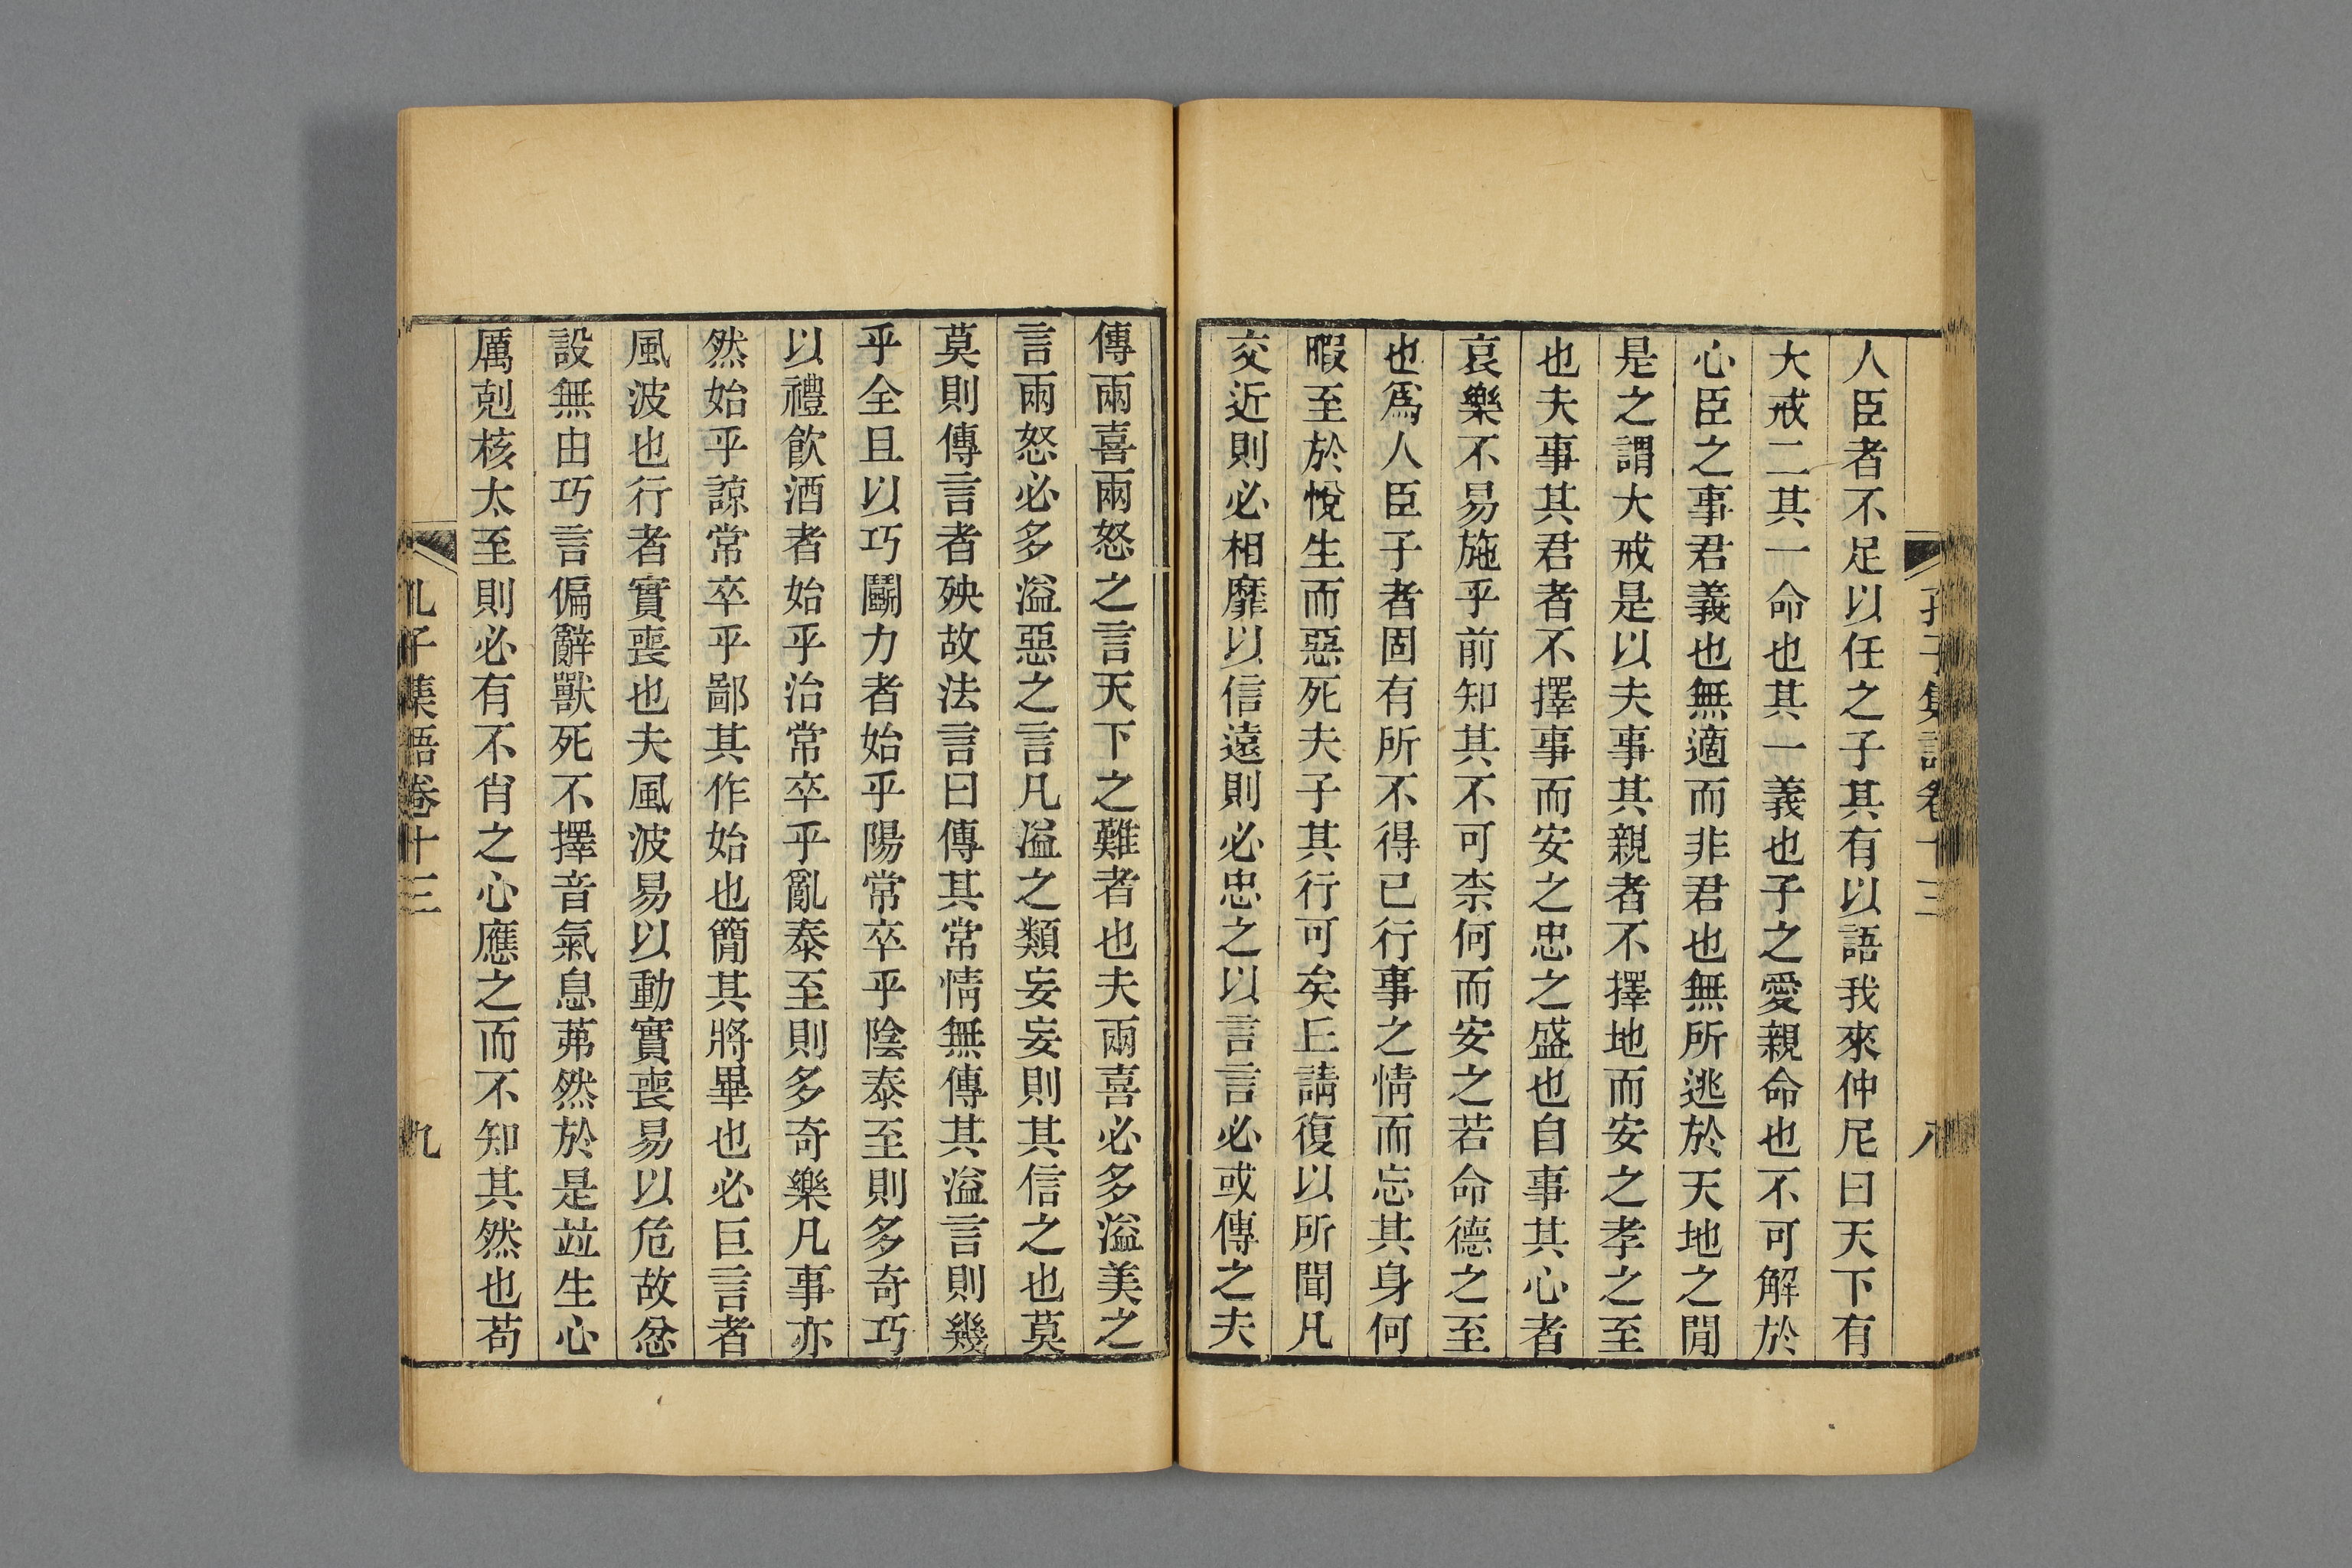 孔子集語卷十三 八
人臣者不足以任之子其有以語我來仲尼曰天下有
大戒二其一命也其一義也子之愛親命也不可解於
心臣之事君義也無適而非君也無所逃於天地之閒
是之謂大戒是以夫事其親者不擇地而安之孝之至
也夫事其君者不擇事而安之忠之盛也自事其心者
哀樂不易施乎前知其不可柰何而安之若命德之至
也爲人臣子者固有所不得已行事之情而忘其身何
暇至於悅生而惡死夫子其行可矣丘請復以所聞凡
交近則必相靡以信遠則必忠之以言言必或傳之夫
傳兩喜兩怒之言天下之難者也夫兩喜必多溢美之
言兩怒必多溢惡之言凡溢之類妄妄則其信之也莫
莫則傳言者殃故法言曰傳其常情無傳其溢言則幾
乎全且以巧鬭力者始乎陽常卒乎陰泰至則多奇巧
以禮飮酒者始乎治常卒乎亂泰至則多奇樂凡事亦
然始乎諒常卒乎鄙其作始也簡其將畢也必巨言者
風波也行者實喪也夫風波易以動實喪易以危故忿
設無由巧言偏辭獸死不擇音氣息茀然於是竝生心
厲剋核太至則必有不肖之心應之而不知其然也苟
孔子集語卷十三 九